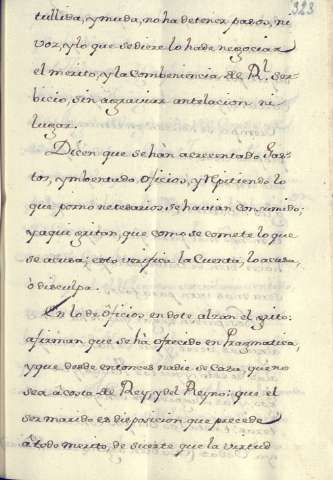 323
tullida, y muda, no ha de tener pasos, ni
voz, y lo que se diere lo ha de negociar
el merito, y la combeniencia de Rl. Ser-
bicio, sin agraviar antelacion, ni
lugar.
Dicen que se hàn acrecentado Gas-
tos, y imbentado Oficios, y repitiendo los
que por no necesarios se havian consumido;
y aqui gritan, que como se comete lo que
se acusa; esto verifica la Cuenta, lo acusa,
ò disculpa.
En lo de Oficios en dote alzan el grito:
afirman que se hà ofrecido en Pragmatica,
y que desde entonces nadie se casa, que no
sea à costa de Rey, y del Reyno: que el
ser marido es disposicion que precede
à todo merito, de suerte que la virtud